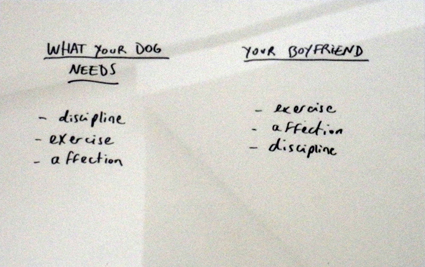 WHAT YOUR DOG
NEEDS
- discipline
- exercise
- affection
YOUR BOYFRIEND
- exercise
- affection
- discipline